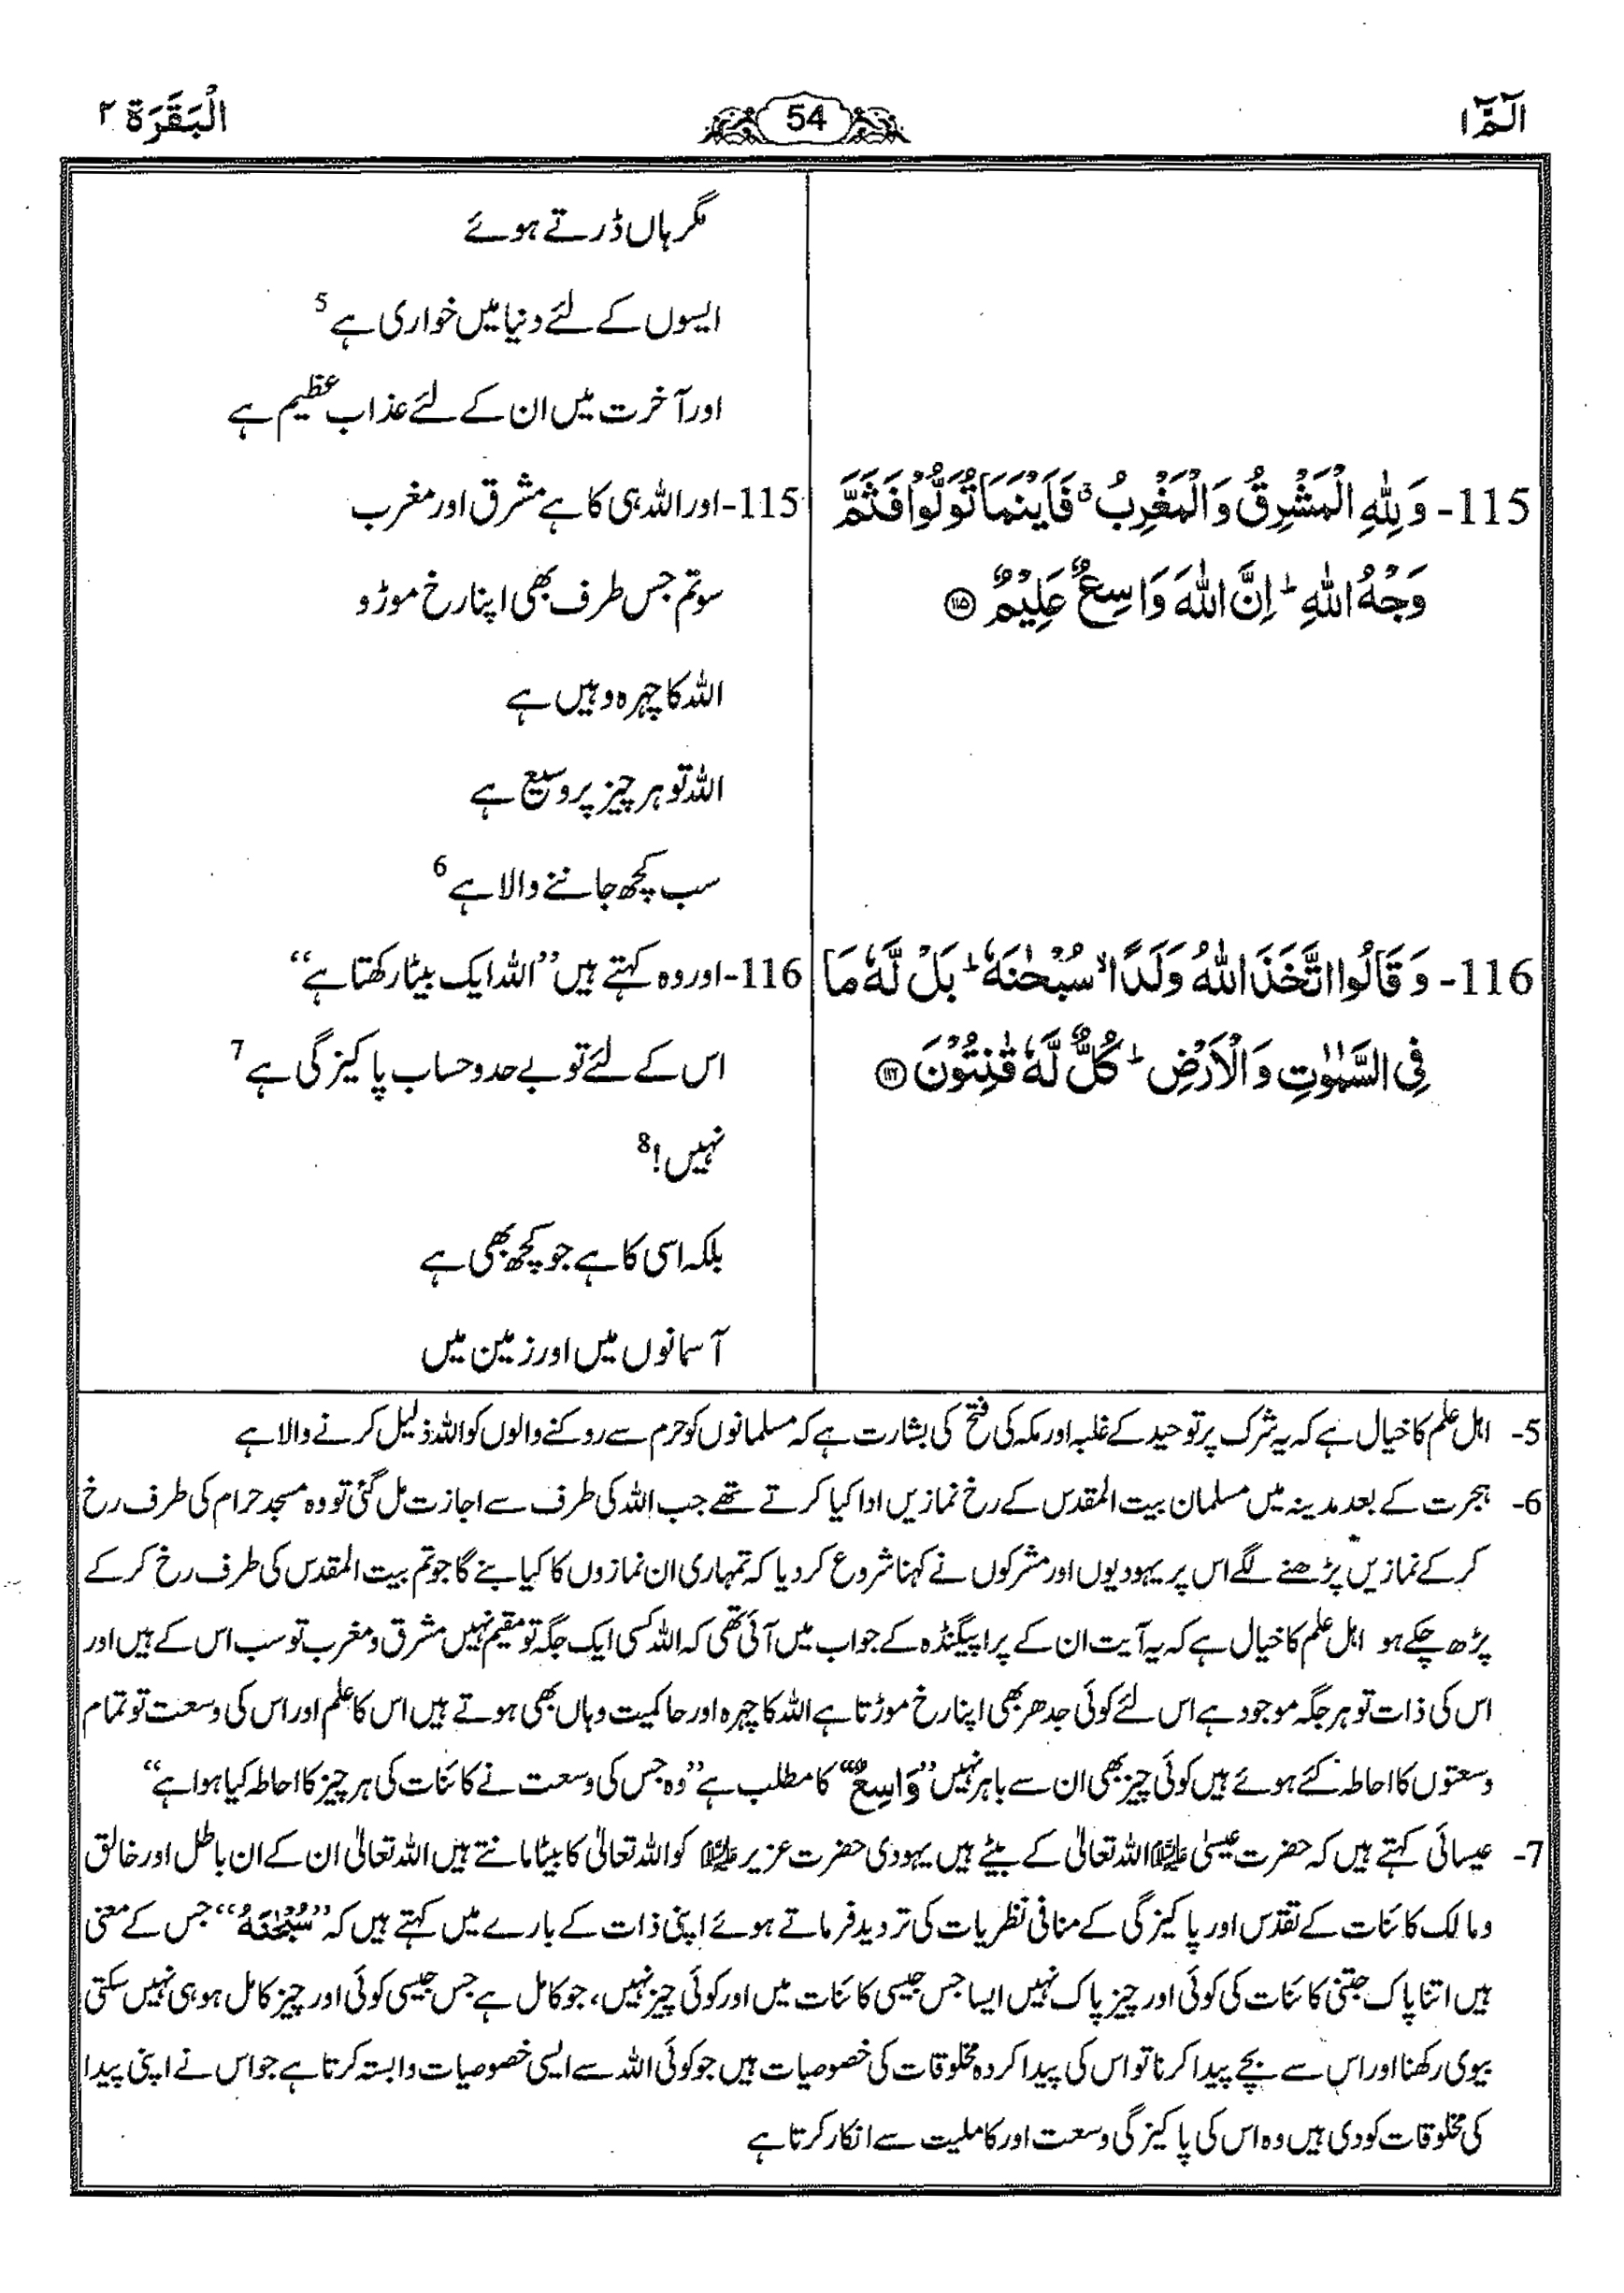 الٓمّٓ ۱
54
الْبَقَرَة ۲
مگر ہاں ڈرتے ہوئے
ایسوں کے لئے دنیا میں خواری ہے 5
اور آخرت میں ان کے لئے عذاب عظیم ہے
115- وَ لِلّٰهِ الْمَشْرِقُ وَ الْمَغْرِبُ ۗ فَاَيْنَمَا تُوَلُّوْا فَثَمَّ
وَجْهُ اللّٰهِ ؕ اِنَّ اللّٰهَ وَاسِعٌ عَلِيْمٌ ۝۱۱۵
115- اور اللہ ہی کا ہے مشرق اور مغرب
سو تم جس طرف بھی اپنا رخ موڑو
اللہ کا چہرہ وہیں ہے
اللہ تو ہر چیز پر وسیع ہے
سب کچھ جاننے والا ہے 6
116- وَ قَالُوا اتَّخَذَ اللّٰهُ وَلَدًا ۙ سُبْحٰنَهٗ ؕ بَلْ لَّهٗ مَا
فِي السَّمٰوٰتِ وَ الْاَرْضِ ؕ كُلٌّ لَّهٗ قٰنِتُوْنَ ۝۱۱۶
116- اور وہ کہتے ہیں ”اللہ ایک بیٹا رکھتا ہے“
اس کے لئے تو بے حد و حساب پاکیزگی ہے 7
نہیں! 8
بلکہ اسی کا ہے جو کچھ بھی ہے
آسمانوں میں اور زمین میں
5- اہل علم کا خیال ہے کہ یہ شرک پر توحید کے غلبہ اور مکہ کی فتح کی بشارت ہے کہ مسلمانوں کو حرم سے روکنے والوں کو اللہ ذلیل کرنے والا ہے
6- ہجرت کے بعد مدینہ میں مسلمان بیت المقدس کے رخ نمازیں ادا کیا کرتے تھے جب اللہ کی طرف سے اجازت مل گئی تو وہ مسجد حرام کی طرف رخ
کر کے نمازیں پڑھنے لگے اس پر یہودیوں اور مشرکوں نے کہنا شروع کر دیا کہ تمہاری ان نمازوں کا کیا بنے گا جو تم بیت المقدس کی طرف رخ کر کے
پڑھ چکے ہو اہل علم کا خیال ہے کہ یہ آیت ان کے پراپیگنڈہ کے جواب میں آئی تھی کہ اللہ کسی ایک جگہ تو مقیم نہیں مشرق و مغرب تو سب اس کے ہیں اور
اس کی ذات تو ہر جگہ موجود ہے اس لئے کوئی جدھر بھی اپنا رخ موڑتا ہے اللہ کا چہرہ اور حاکمیت وہاں بھی ہوتے ہیں اس کا علم اور اس کی وسعت تو تمام
وسعتوں کا احاطہ کئے ہوئے ہیں کوئی چیز بھی ان سے باہر نہیں ”وَاسِعٌ“ کا مطلب ہے ”وہ جس کی وسعت نے کائنات کی ہر چیز کا احاطہ کیا ہوا ہے“
7- عیسائی کہتے ہیں کہ حضرت عیسیٰ علیہ السلام اللہ تعالیٰ کے بیٹے ہیں یہودی حضرت عزیر علیہ السلام کو اللہ تعالیٰ کا بیٹا مانتے ہیں اللہ تعالیٰ ان کے ان باطل اور خالق
و مالک کائنات کے تقدس اور پاکیزگی کے منافی نظریات کی تردید فرماتے ہوئے اپنی ذات کے بارے میں کہتے ہیں کہ ”سُبْحٰنَهٗ“ جس کے معنی
ہیں اتنا پاک جتنی کائنات کی کوئی اور چیز پاک نہیں ایسا جس جیسی کائنات میں اور کوئی چیز نہیں، جو کامل ہے جس جیسی کوئی اور چیز کامل ہو ہی نہیں سکتی
بیوی رکھنا اور اس سے بچے پیدا کرنا تو اس کی پیدا کردہ مخلوقات کی خصوصیات ہیں جو کوئی اللہ سے ایسی خصوصیات وابستہ کرتا ہے جو اس نے اپنی پیدا
کی مخلوقات کو دی ہیں وہ اس کی پاکیزگی وسعت اور کاملیت سے انکار کرتا ہے